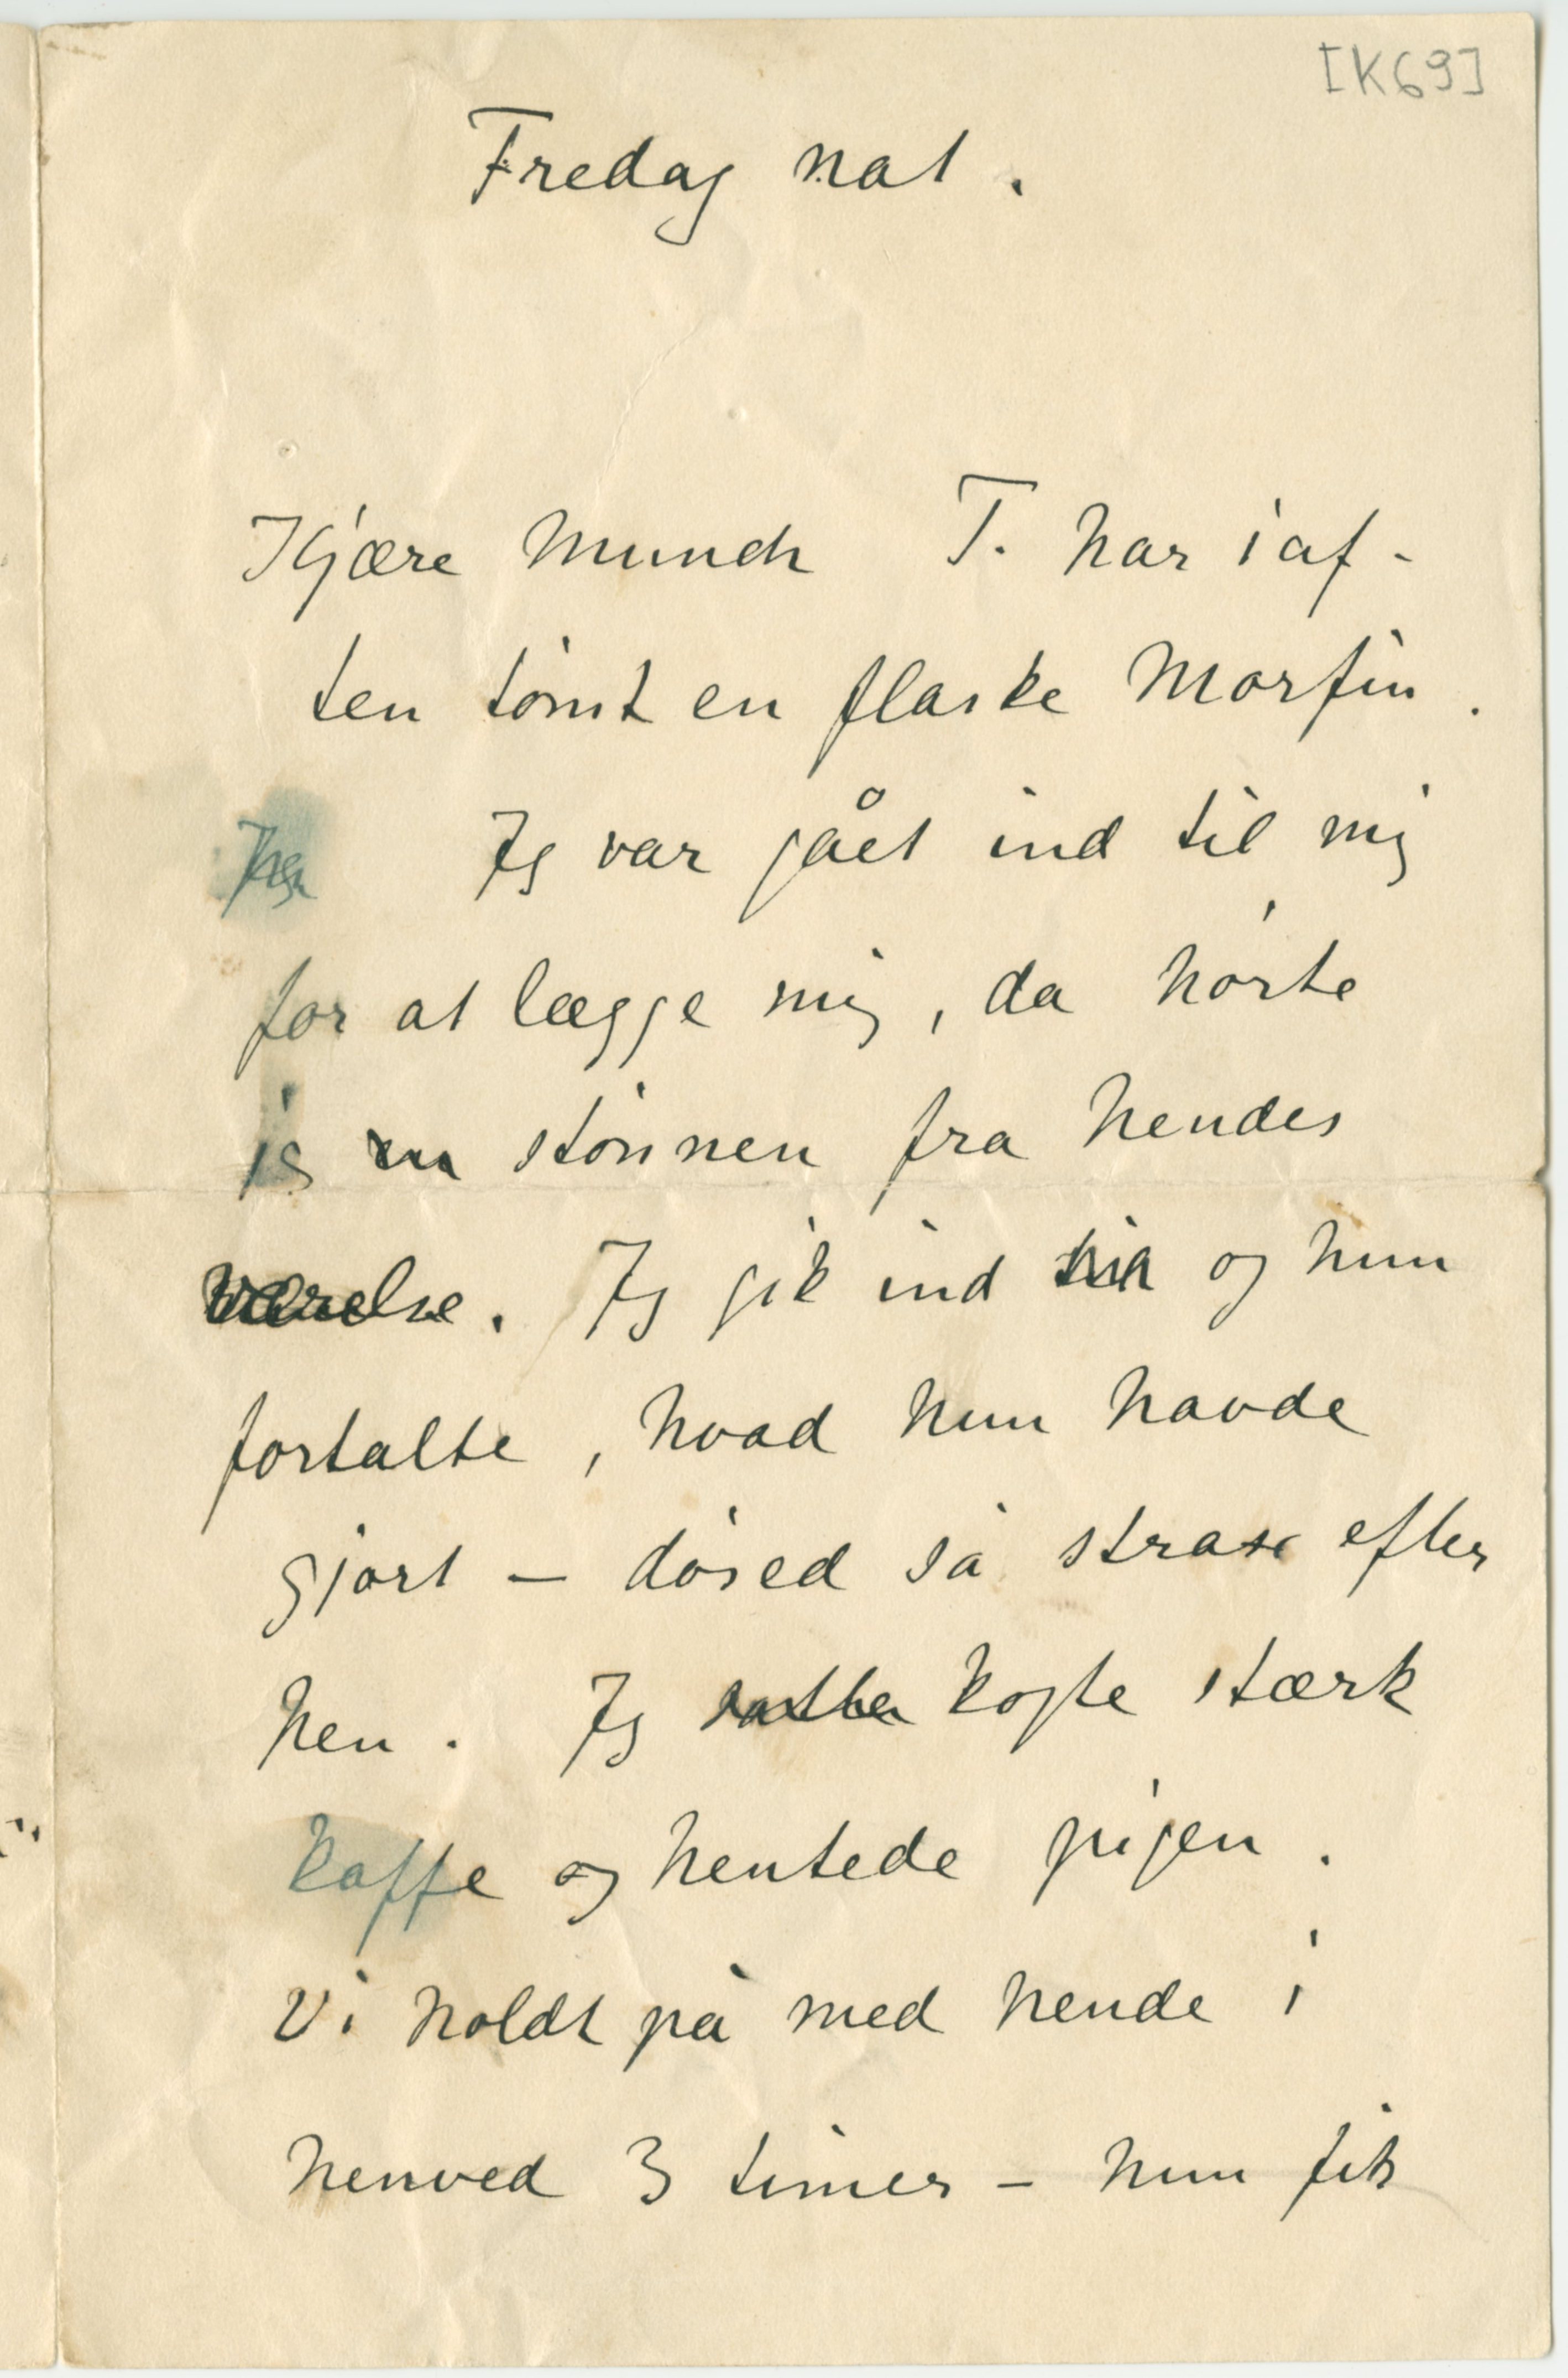 [K69]
Fredag nat.
Kjære Munch T. har iaf-
ten tømt en flaske Morfin.
Jeg var gået ind til mig
for at lægge mig, da hørte
jeg en stønnen fra hendes
værelse. Jeg gik ind og hun
fortalte, hvad hun havde
gjort – døsed så strax efter
hen. Jeg kogte stærk
kaffe og hentede pigen.
Vi holdt på med hende i
henved 3 timer – hun fik